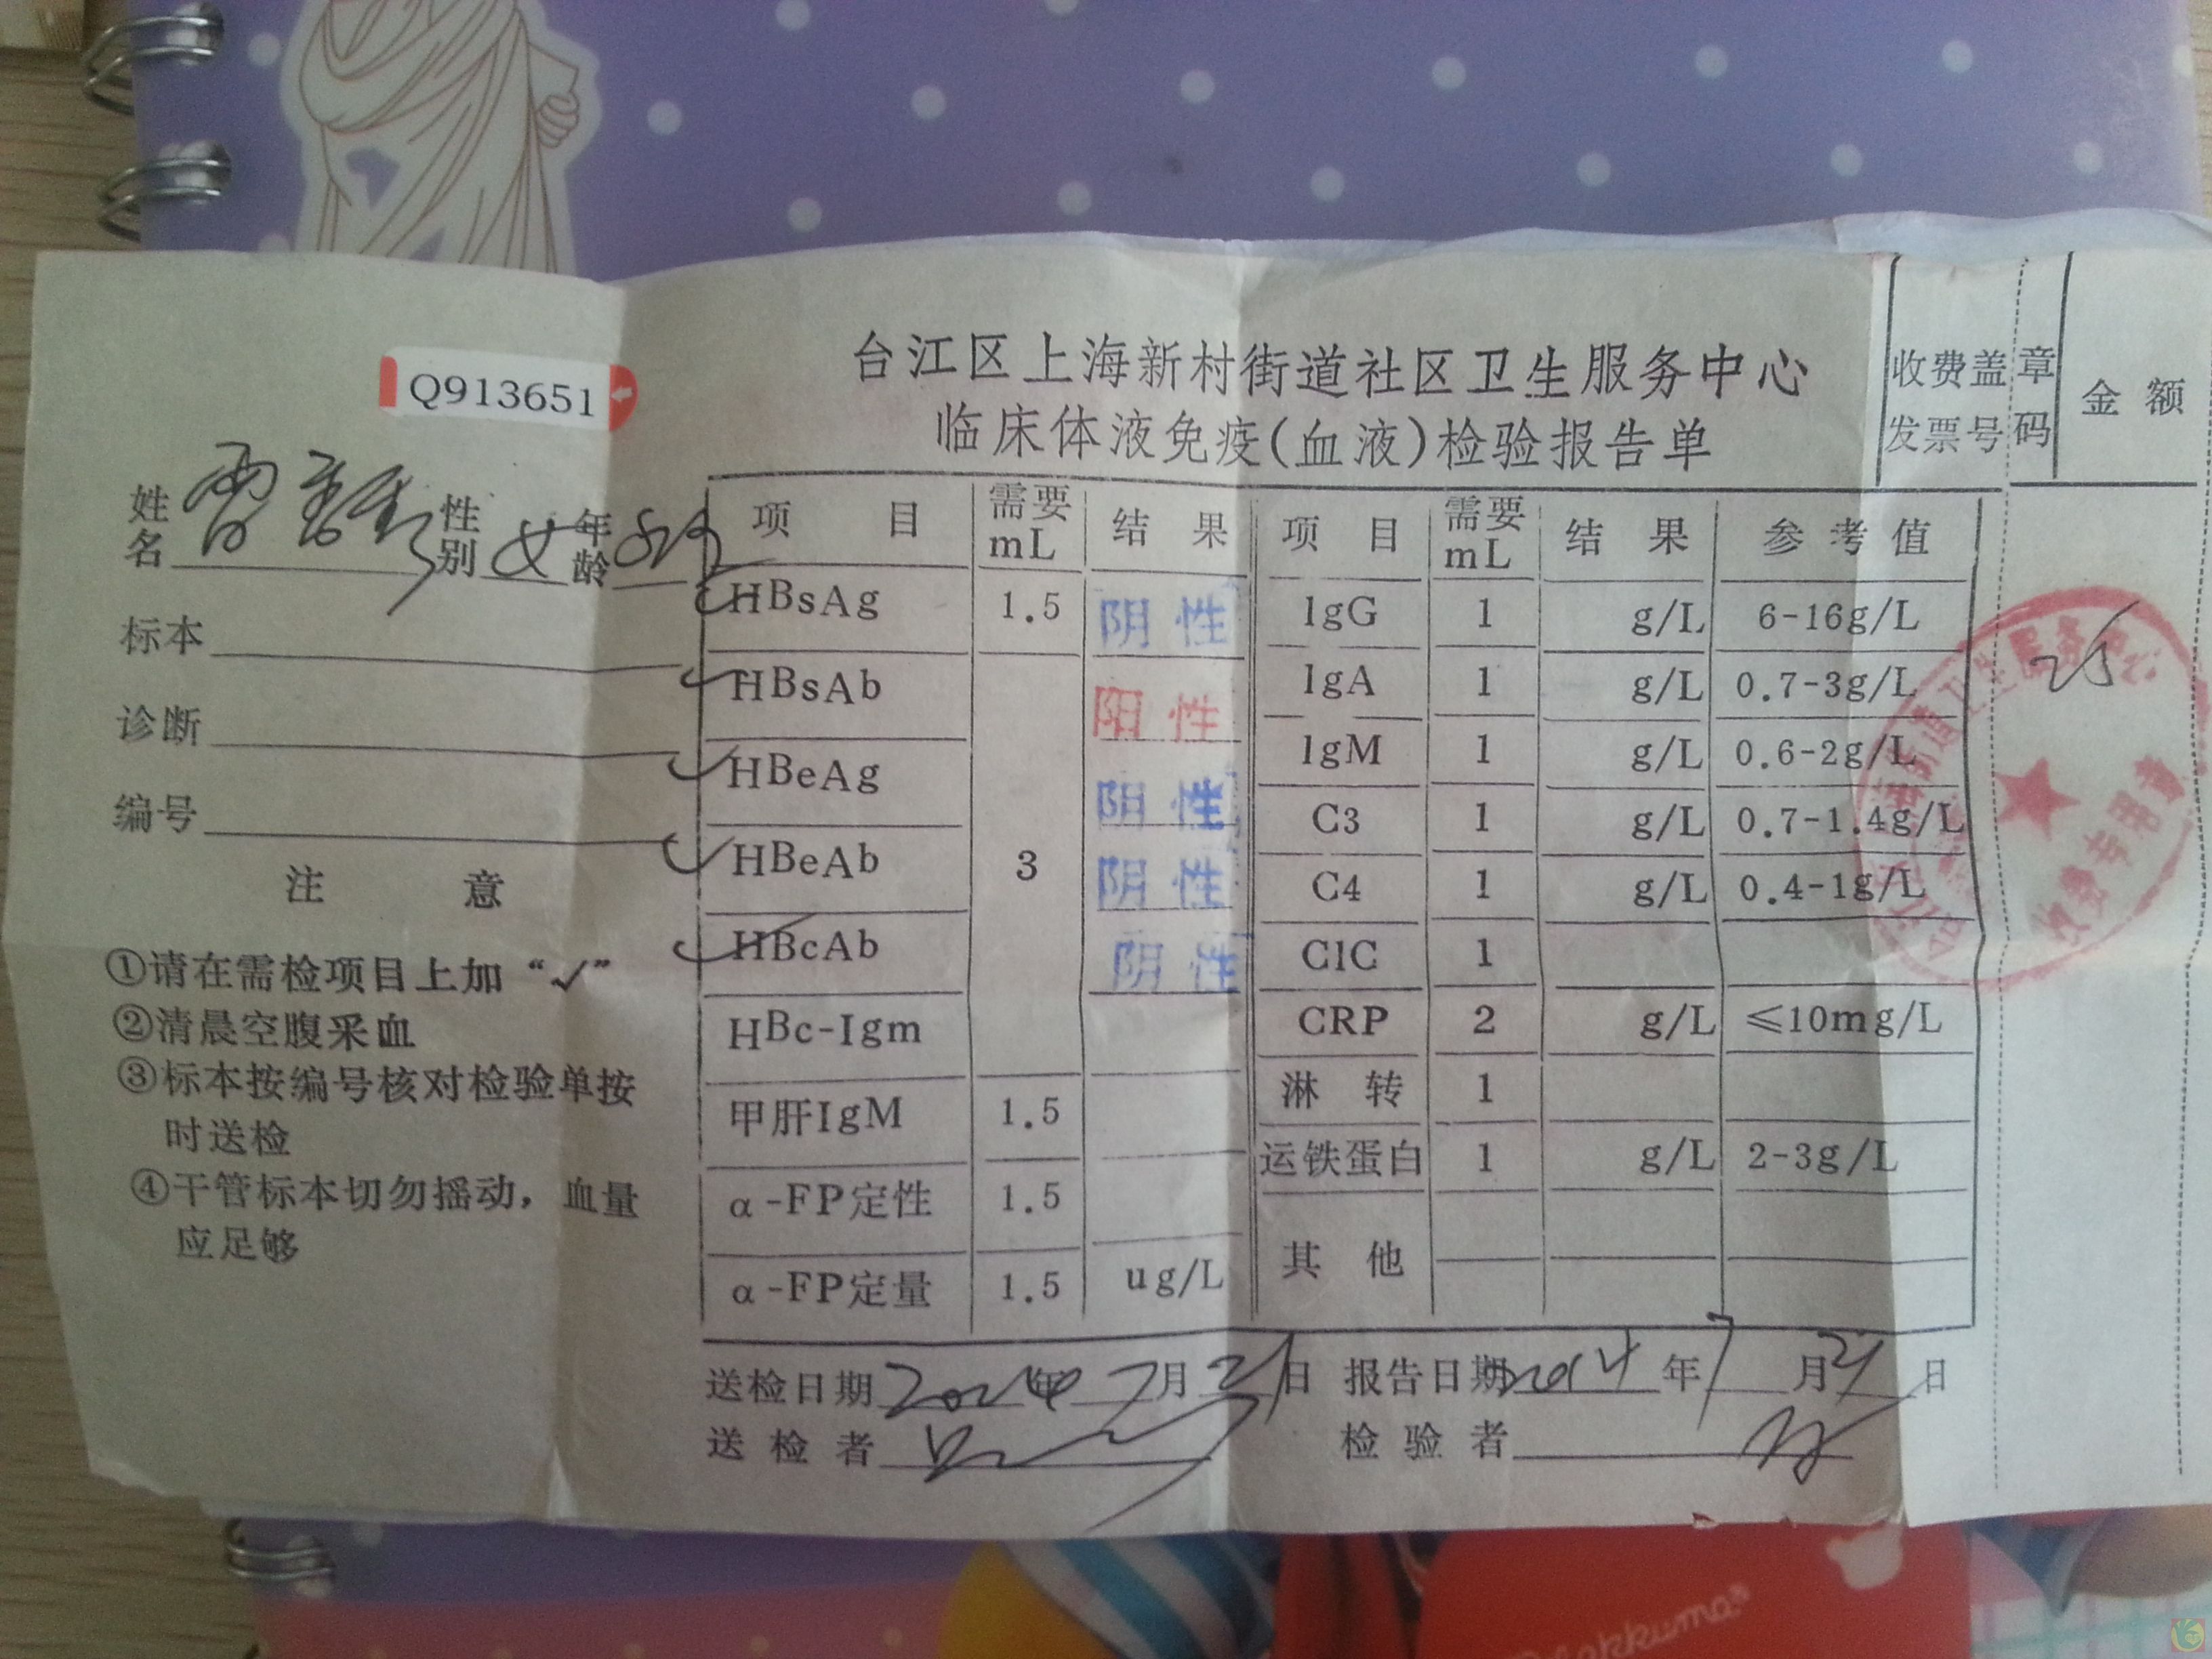 台江区上海新村街道社区卫生服务中心
临床体液免疫(血液)检验报告单
收费盖章 金额
发票号码
Q913651
姓名 性别 女 年龄
标本
诊断
编号
注 意
①请在需检项目上加“✓”
②清晨空腹采血
③标本按编号核对检验单按
时送检
④干管标本切勿摇动，血量
应足够
项 目 需要mL 结 果 项 目 需要mL 结 果 参 考 值
✓HBsAg 1.5 阴性 IgG 1 g/L 6-16g/L
✓HBsAb 阳性 IgA 1 g/L 0.7-3g/L
✓HBeAg 阴性 IgM 1 g/L 0.6-2g/L
✓HBeAb 3 阴性 C3 1 g/L 0.7-1.4g/L
✓HBcAb 阴性 C4 1 g/L 0.4-1g/L
HBc-Igm CIC 1
CRP 2 g/L ≤10mg/L
甲肝IgM 1.5 淋 转 1
α-FP定性 1.5 运铁蛋白 1 g/L 2-3g/L
α-FP定量 1.5 ug/L 其 他
25
街道卫生服务中心
收费专用章
送检日期 年 7月21日 报告日期2014年7月21日
送检者 检验者